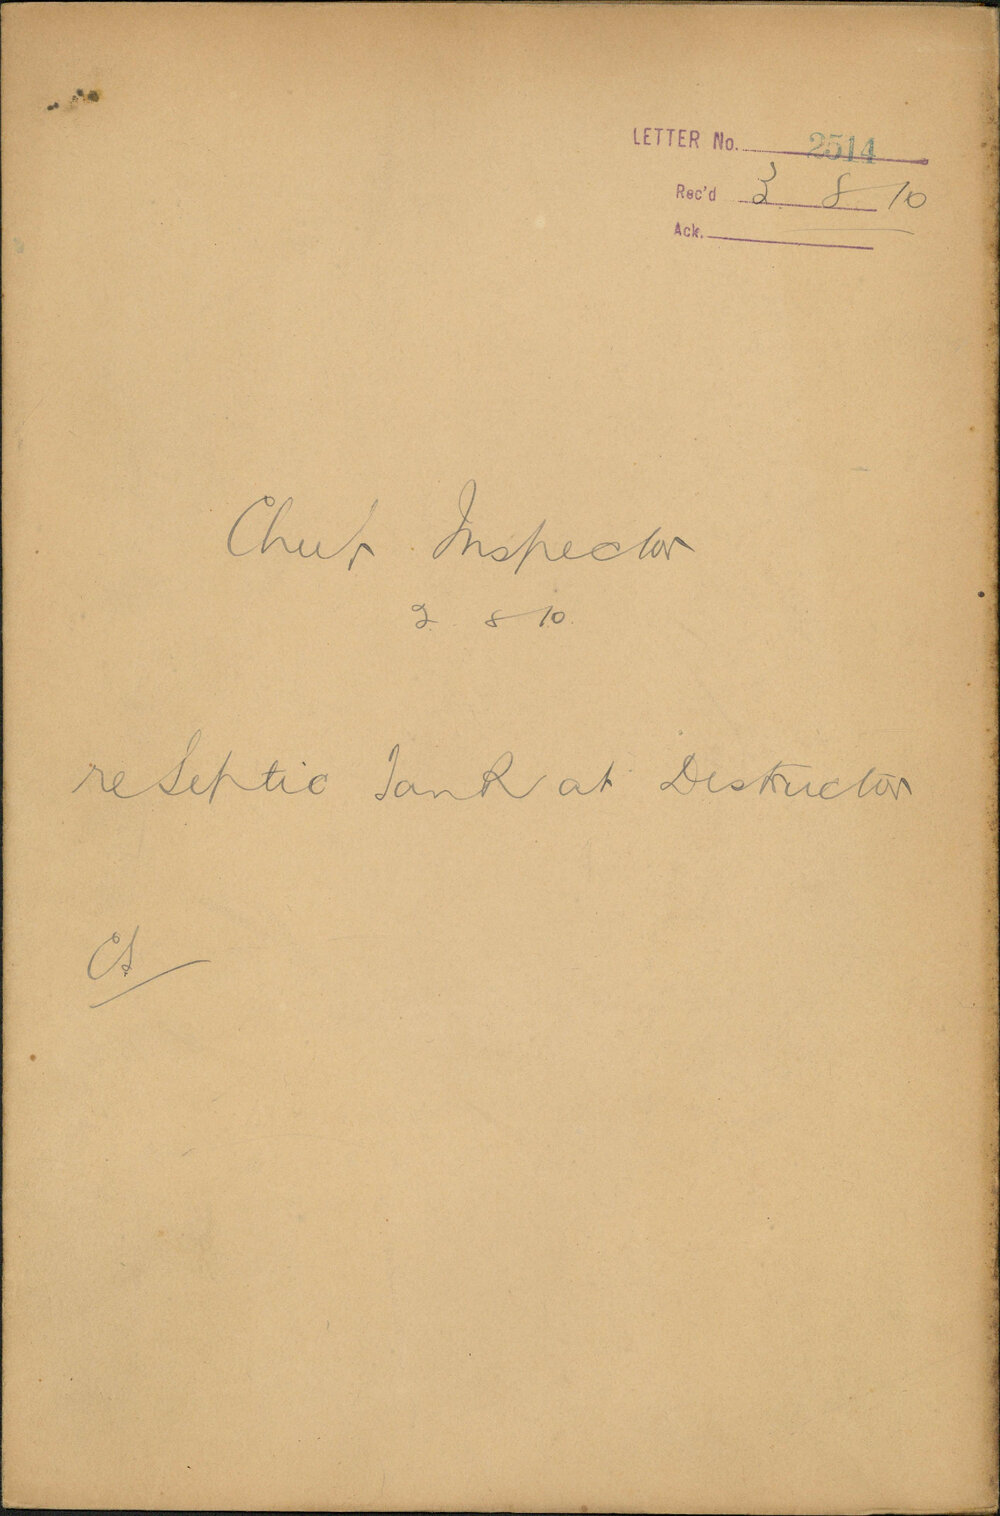 LETTER No. 2514
Rec'd 3 8 10
Ack.
Chief Inspector
2 8 10
re Septic Tank at Destructor